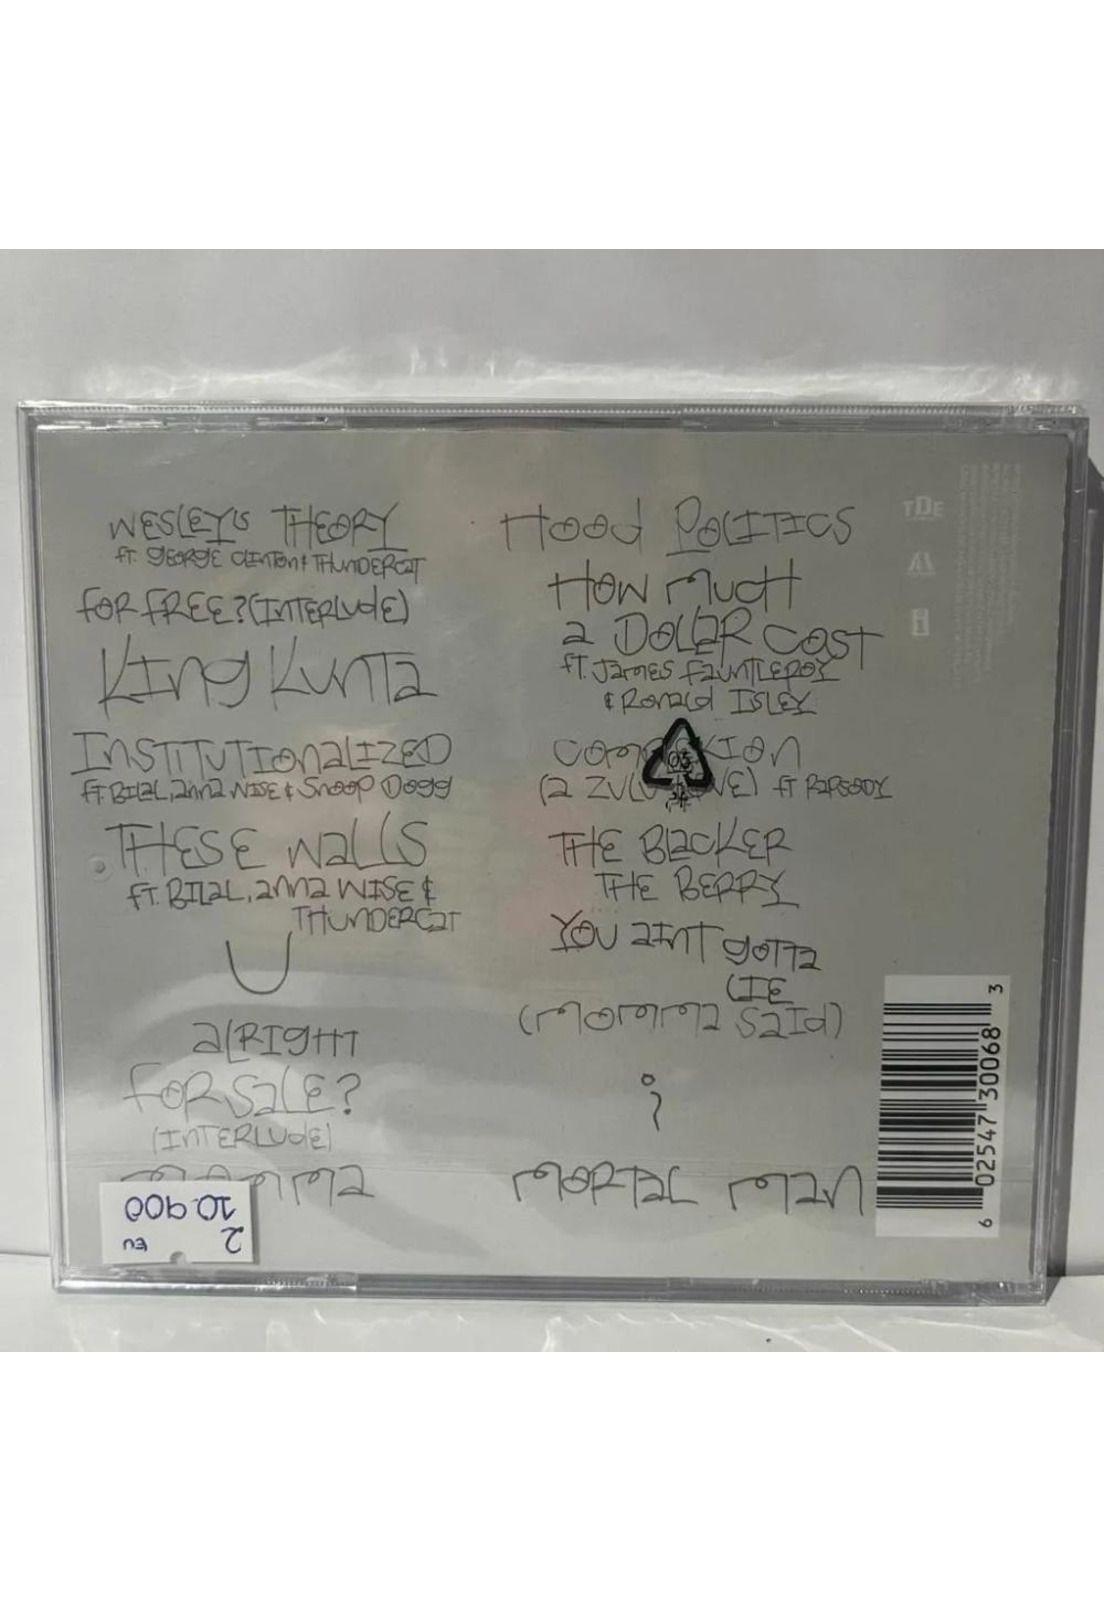 WESLEY'S THEORY
ft. GEORGE CLINTON & THUNDERCAT
FOR FREE? (INTERLUDE)
KING KUNTA
INSTITUTIONALIZED
ft. BILAL, ANNA WISE & SNOOP DOGG
THESE WALLS
ft. BILAL, ANNA WISE &
THUNDERCAT
U
ALRIGHT
FOR SALE?
(INTERLUDE)
MOMMA
2
EU
10.900
HOOD POLITICS
HOW MUCH
A DOLLAR COST
ft. JAMES FAUNTLEROY
& RONALD ISLEY
(A ZULU LOVE) ft RAPSODY
THE BLACKER
THE BERRY
YOU AINT GOTTA
LIE
(MOMMA SAID)
i
MORTAL MAN
TDE
6 02547 30068 3